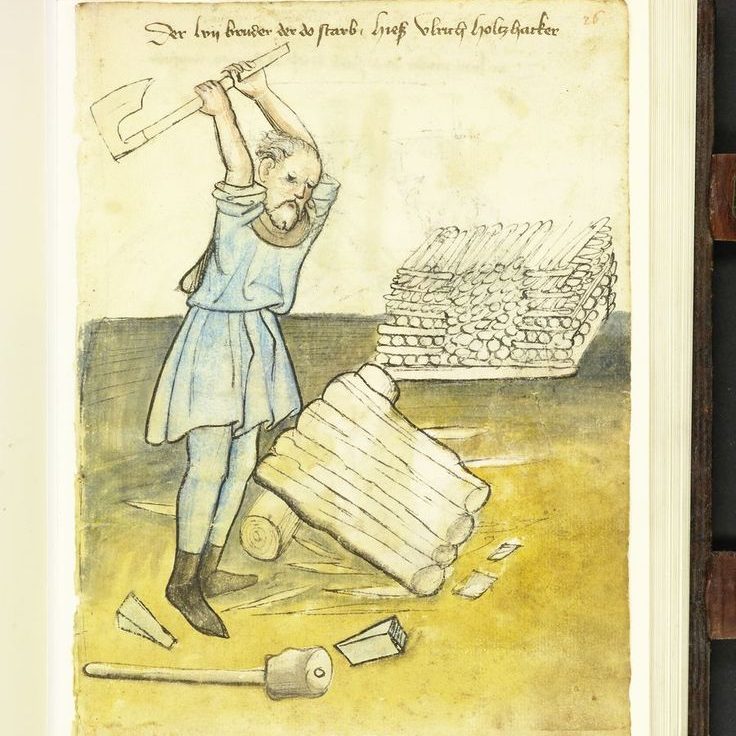 Der lvij bruder der do starb · hieß vlrich holtzhacker
26